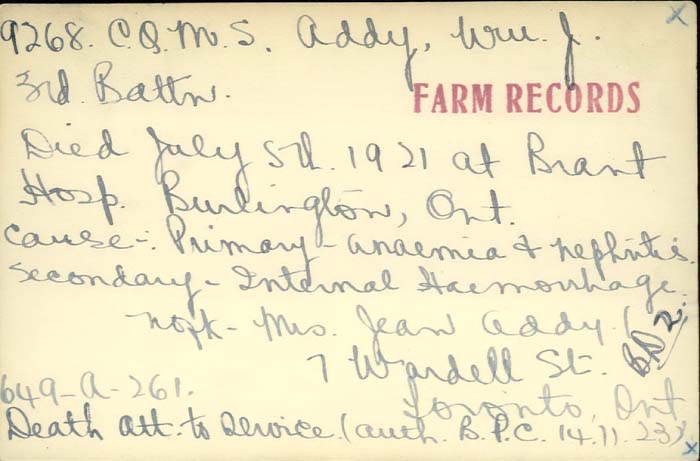 9268. C.Q.M.S. Addy, Wm. J.
3rd Battn.
FARM RECORDS
Died July 5th. 1921 at Brant
Hosp. Burlington, Ont.
Cause-: Primary - anaemia & nephritis.
Secondary - Internal Haemorrhage.
nofk - Mrs. Jean Addy (
7 Wardell St.
B.D 2.
649-A-261.
Toronto, Ont
Death att. to Service (auth. B.P.C. 14.11.23)